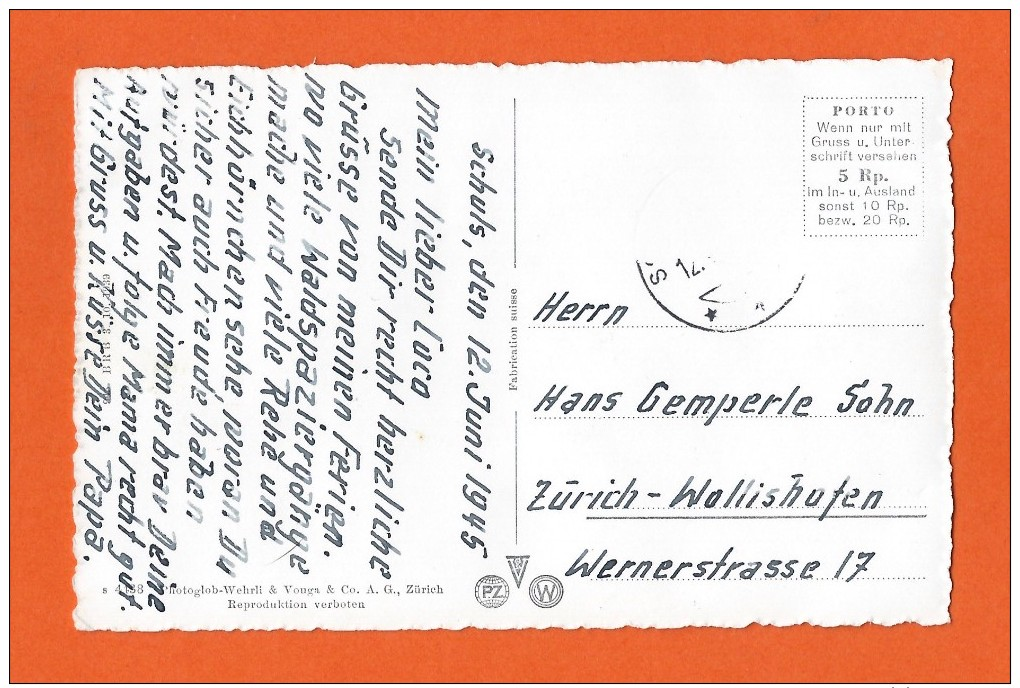 Schuls, den 12. Juni 1945
Mein lieber Coco
Sende Dir recht herzliche
Grüsse von meinen Ferien.
wo viele Waldspaziergänge
mache und viele Rehe und
Eichhörnchen sehe woran Du
sicher auch Freude haben
würdest. Mach immer brav Deine
Aufgaben u. folge Mama recht gut.
Mit Gruss u. Küsse Dein Papa.
BRB 3. 10. 1939
Fabrication suisse
PORTO
Wenn nur mit
Gruss u. Unter-
schrift versehen
5 Rp.
im In- u. Ausland
sonst 10 Rp.
bezw. 20 Rp.
12. V
Herrn
Hans Gemperle Sohn
Zürich-Wollishofen
Wernerstrasse 17
Photoglob-Wehrli & Vouga & Co. A. G., Zürich
Reproduktion verboten
PZ
W